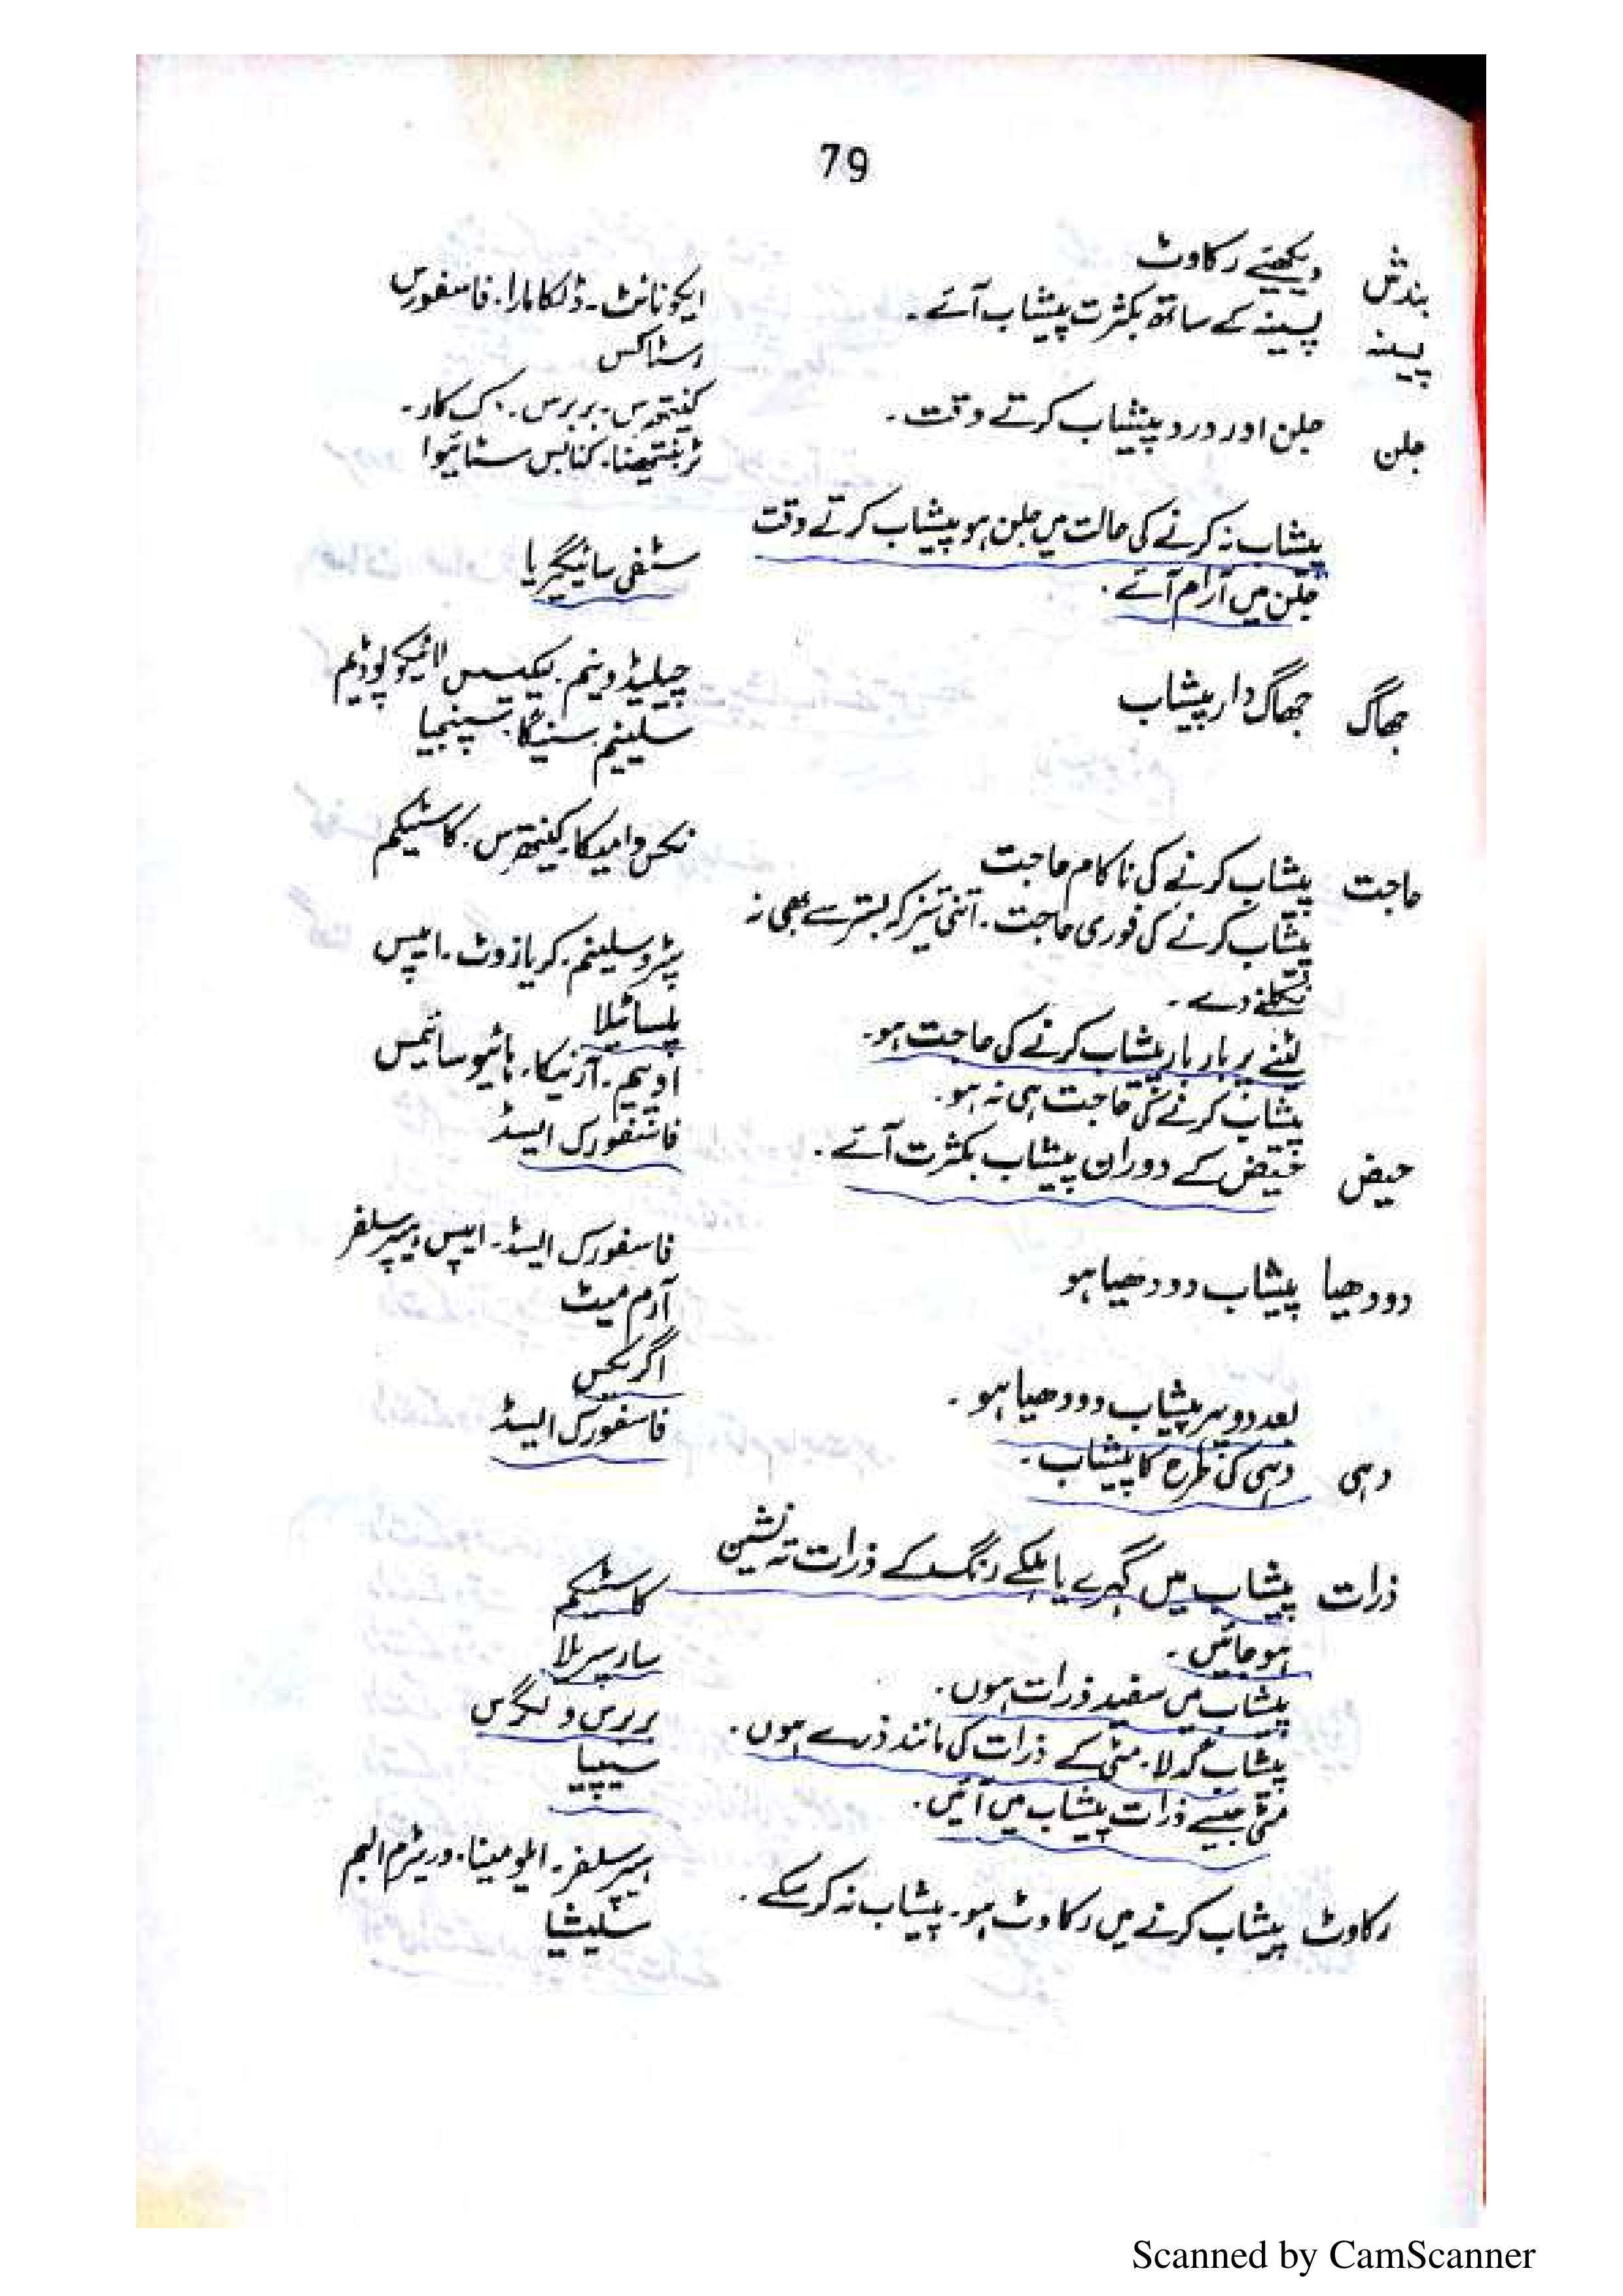 79
بندش دیکھئے رکاوٹ
پسینہ پسینہ کے ساتھ بکثرت پیشاب آئے۔ ایکونائٹ۔ ڈلکامارا۔ فاسفورس
رسٹاکس
جلن جلن اور درد پیشاب کرتے وقت۔ کینتھرس۔ بربرس۔ ک کار۔
ٹربنتھینا۔ کنابس سٹائیوا
پیشاب نہ کرنے کی حالت میں جلن ہو پیشاب کرتے وقت
جلن میں آرام آئے۔ سٹفی سائیگیریا
جھاگ جھاگ دار پیشاب چیلیڈونیم۔ لیکیسس لائیکوپوڈیم
سلینیم۔ سنیگا۔ سپنجیا
حاجت پیشاب کرنے کی ناکام حاجت نکس وامیکا۔ کینتھرس۔ کاسٹیکم
پیشاب کرنے کی فوری حاجت۔ اتنی تیز کہ بستر سے بھی نہ
نکلنے دے۔ پٹروسلینم۔ کریازوٹ۔ ایپس
لیٹنے پر بار بار پیشاب کرنے کی حاجت ہو۔ پلساٹیلا
پیشاب کرنے کی حاجت ہی نہ ہو۔ اوپیم۔ آرنیکا۔ ہائیوسائیمس
حیض حیض کے دوران پیشاب بکثرت آئے۔ فاسفورک ایسڈ
دودھیا پیشاب دودھیا ہو فاسفورک ایسڈ۔ ایپس ہیپر سلفر
آرم میٹ
بعد دوپہر پیشاب دودھیا ہو۔ اگریکس
دہی دہی کی طرح کا پیشاب۔ فاسفورک ایسڈ
ذرات پیشاب میں گہرے یا ہلکے رنگ کے ذرات تہ نشین
ہو جائیں۔ کاسٹیکم
پیشاب میں سفید ذرات ہوں۔ سارسپریلا
پیشاب گدلا۔ مٹی کے ذرات کی مانند ذرے ہوں۔ بربرس ولگرس
مٹی جیسے ذرات پیشاب میں آئیں۔ سیپیا
رکاوٹ پیشاب کرنے میں رکاوٹ ہو۔ پیشاب نہ کر سکے۔ ہیپر سلفر۔ ایلومینا۔ وریٹرم البم
سلیشیا
Scanned by CamScanner